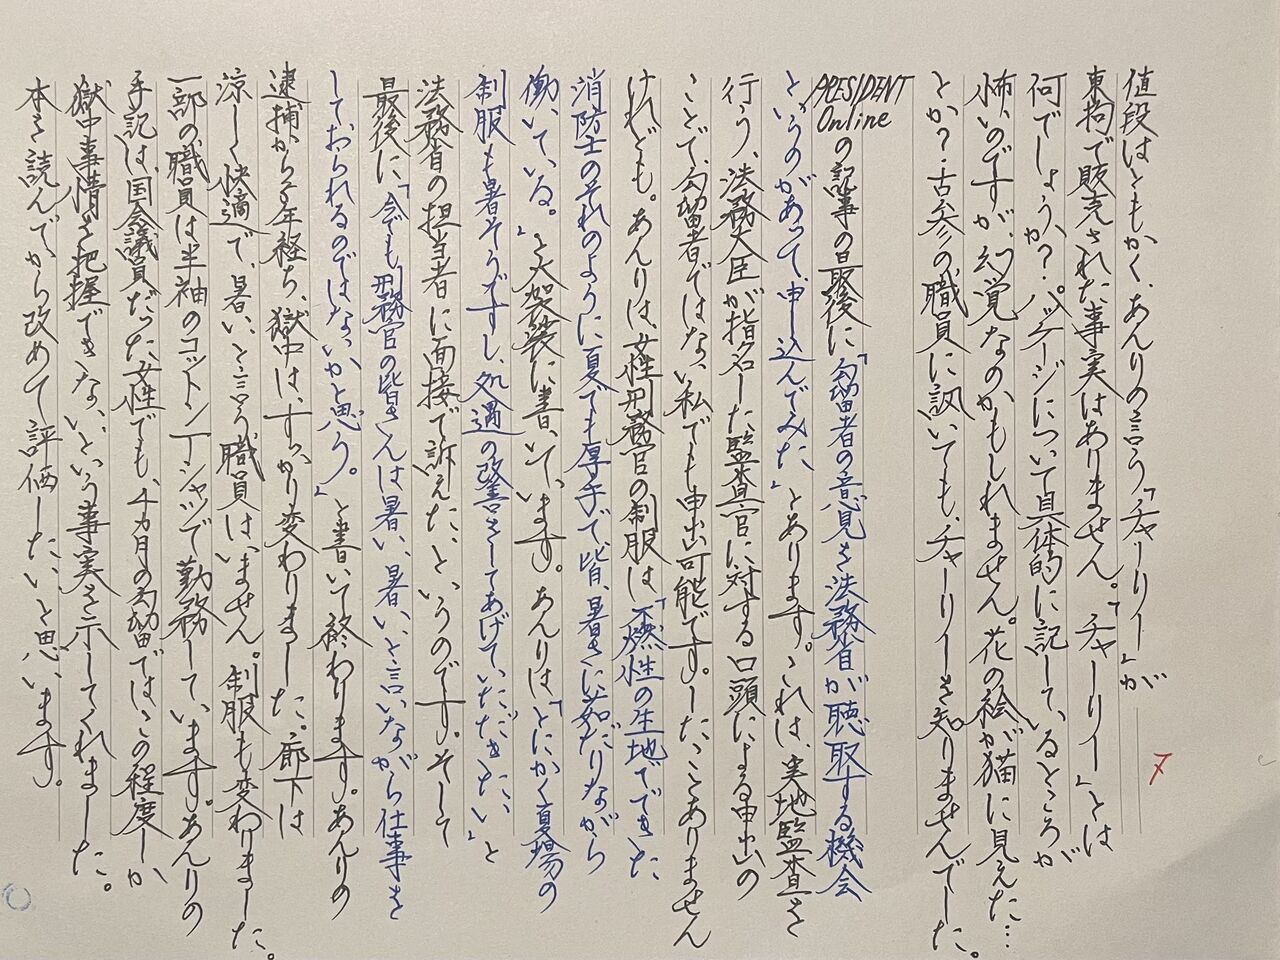 7
値段はともかく、あんりの言う「チャーリー」が
東拘で販売された事実はありません。「チャーリー」とは
何でしょうか？パッケージについて具体的に記しているところが
怖いのですが、幻覚なのかもしれません。花の絵が猫に見えた…
とか？古参の職員に訊いても、チャーリーを知りませんでした。
PRESIDENT Onlineの記事の最後に「勾留者の意見を法務省が聴取する機会
というのがあって、申し込んでみた」とあります。これは、実地監査を
行う、法務大臣が指名した監査官に対する口頭による申出の
ことで、勾留者ではない私でも申出可能です。したことありません
けれども。あんりは、女性刑務官の制服は「不燃性の生地でできた
消防士のそれのように夏でも厚手で皆、暑さに茹だりながら
働いている。」と大袈裟に書いています。あんりは「とにかく夏場の
制服も暑そうですし、処遇の改善をしてあげていただきたい」と
法務省の担当者に面接で訴えたというのです。そして
最後に「今でも刑務官の皆さんは暑い、暑いと言いながら仕事を
しておられるのではないかと思う。」と書いて終わります。あんりの
逮捕から3年経ち、獄中は、すっかり変わりました。廊下は
涼しく快適で、暑いと言う職員はいません。制服も変わりました。
一部の職員は半袖のコットンTシャツで勤務しています。あんりの
手記は、国会議員だった女性でも、4ヵ月の勾留ではこの程度しか
獄中事情を把握できないという事実を示してくれました。
本を読んでから改めて評価したいと思います。